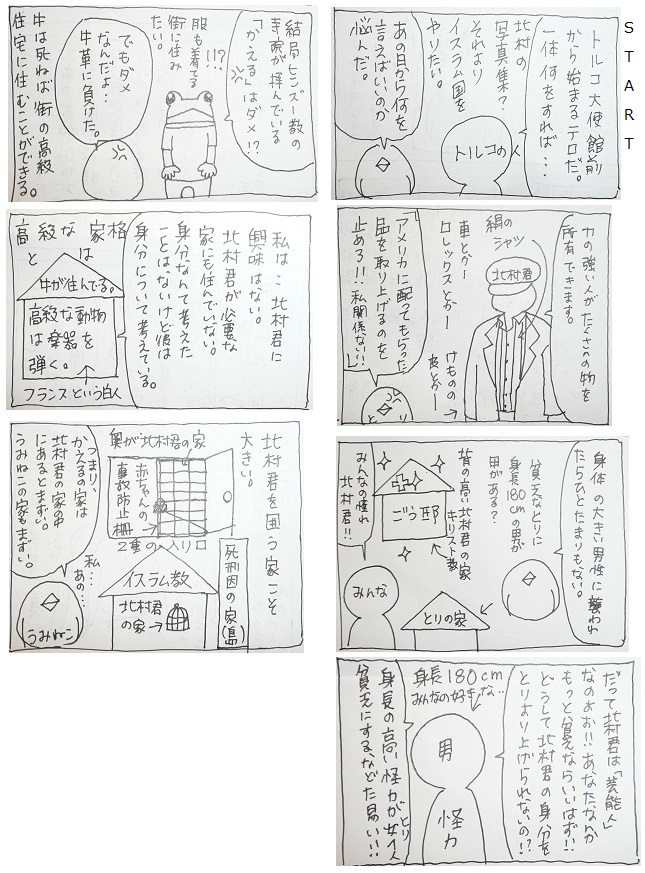 START
トルコ大使館前
から始まるテロだ。
一体何をすれば…
北村の
写真集？
それより
イスラム国を
やりたい。
トルコの人
あの日から何を
言えばいいのか
悩んだ。
力の強い人がたくさんの物を
所有できます。
絹の
シャツ
北村君
車とかー
ロレックスとかー
けものの
皮とかー
「アメリカに配ってもらった
品を取り上げるのを
止めろ!!私関係ない!!」
とり
身体の大きい男性に襲われ
たらひとたまりもない。
貧乏なとりに
身長180cmの男が
用がある？
背の高い北村君の家
キリスト教
ごう邸
みんなの憧れ
北村君!!
みんな
とりの家
だって北村君は「芸能人」
なのよお!!あなたなんか
もっと貧乏ならいいはず!!
どうして北村君の身分を
とりより上げられないの!?
身長180cm
みんなの好きな…
男
怪力
身長の高い怪力が女1人
とり
貧乏にする、などた易い!!
結局ヒンズー教の
寺院が拝んでいる
「かえる」はダメ!?
!!?
服も着てる
街に住み
たい。
でもダメ
なんだよ…
牛革に負けた。
牛は死ねば街の高級
住宅に住むことができる。
私は…北村君に
興味はない。
北村君が必要な
家にも住んでいない。
身分なんて考えた
ことはないけど彼は
身分について考えている。
高級な家格
とは
牛が住んでる。
高級な動物
は楽器を
弾く。
フランスという白人
北村君を囲う家こそ
大きい。
奥が北村君の家
赤ちゃんの
事故防止
柵→
2重の入り口
死刑囚の家(島)
イスラム教
北村君
の家→
つまり、
かえるの家は
北村君の家の中
にあるとまずい。
うみねこの家もまずい。
私…
あの…
うみねこ